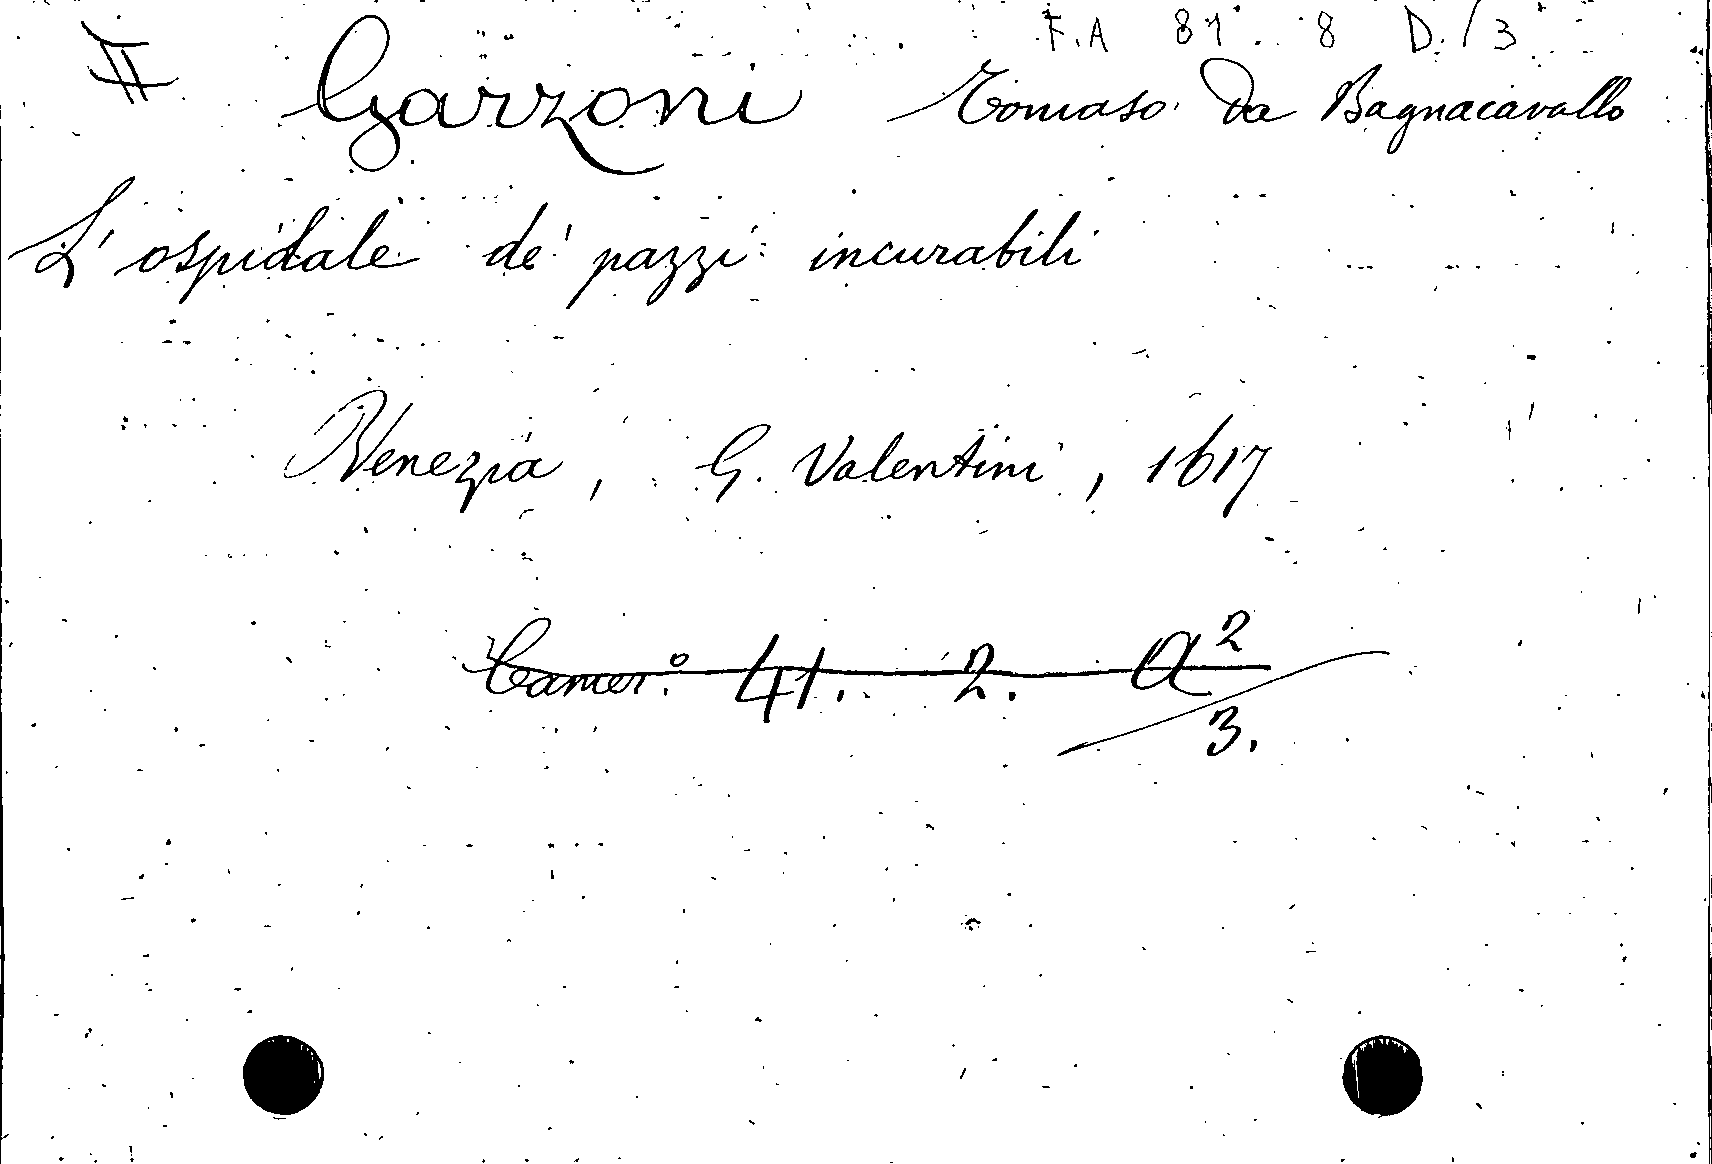 F.A 81. 8 D./3
# Garzoni Tomaso da Bagnacavallo
L'ospidale de' pazzi incurabili
Venezia, G. Valentini, 1617
Camer.° 41. 2. a 2/3.